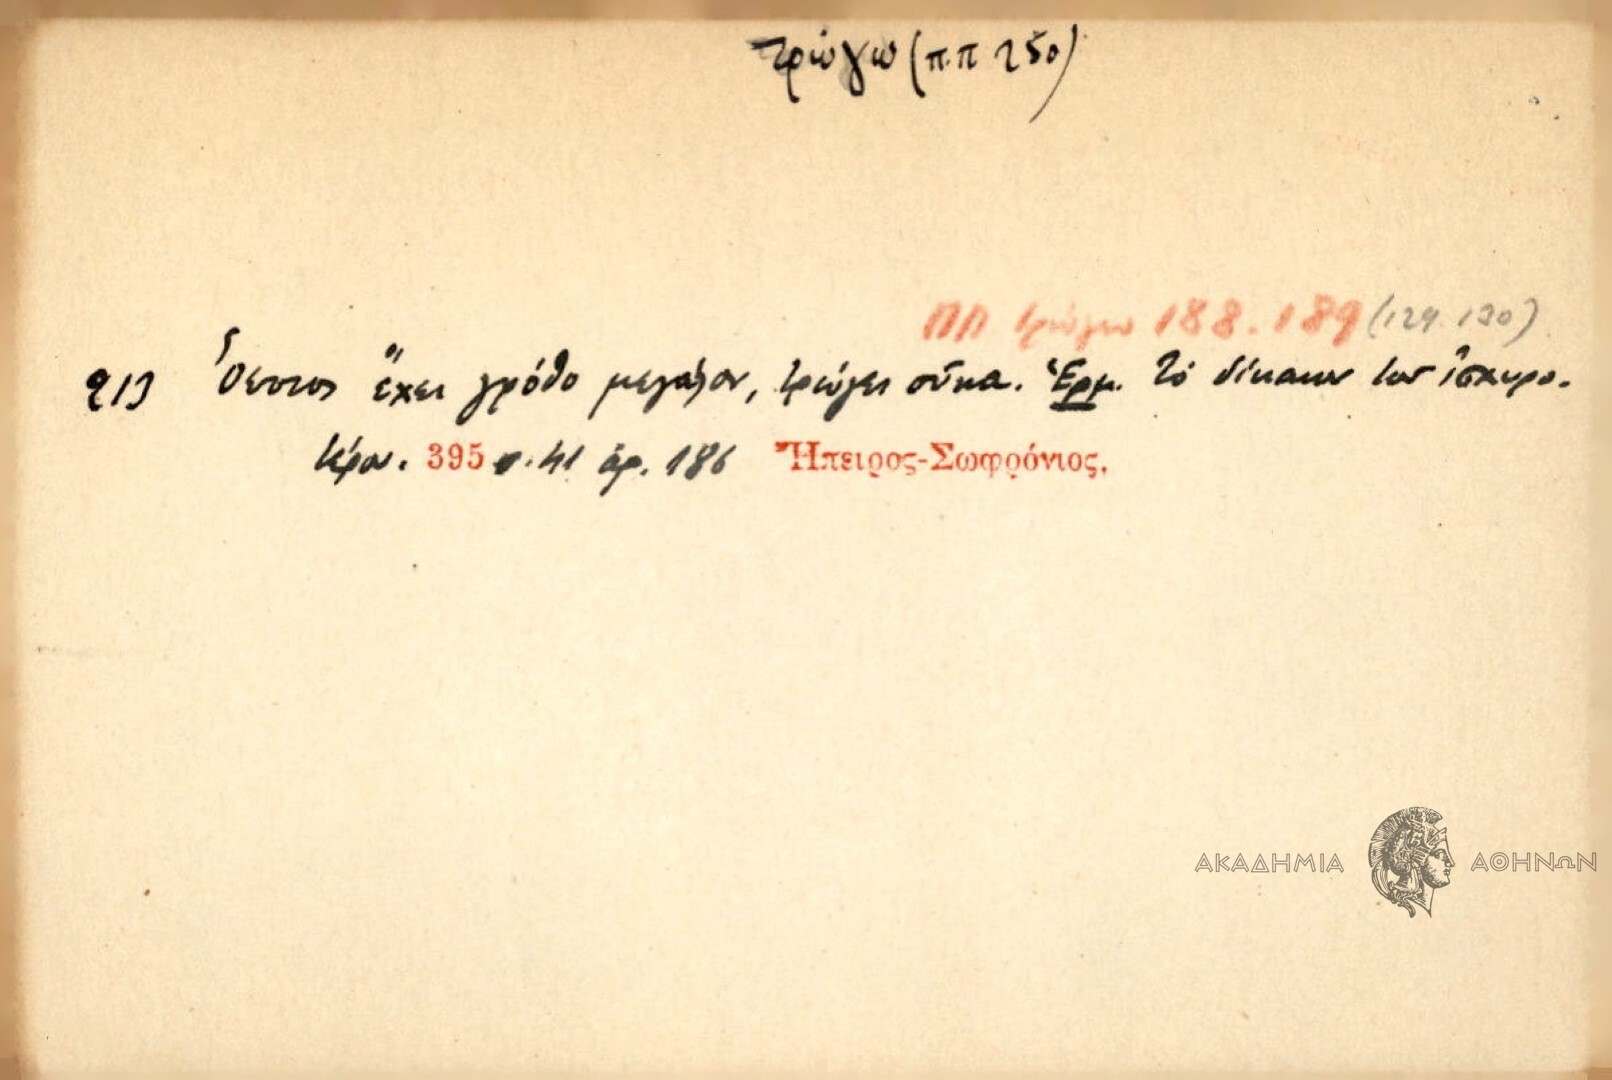 τρώγω (π.π 250)
ΠΠ τρώγω 188. 189 (129. 130)
213 Ὅστις ἔχει γρόθο μεγάλον, τρώγει σῦκα. Ἑρμ. Τὸ δίκαιον τοῦ ἰσχυρο.
395 σ. 41 ἀρ. 186 Ἤπειρος-Σωφρόνιος.
ΑΚΑΔΗΜΙΑ ΑΘΗΝΩΝ